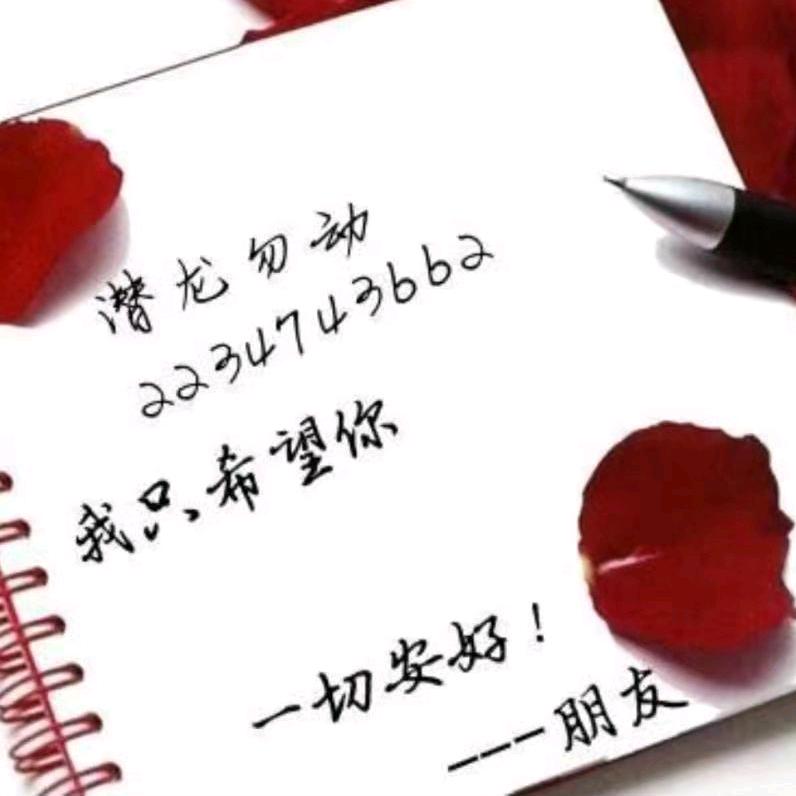 潜龙勿动
2234743662
我只希望你
一切安好!
---朋友